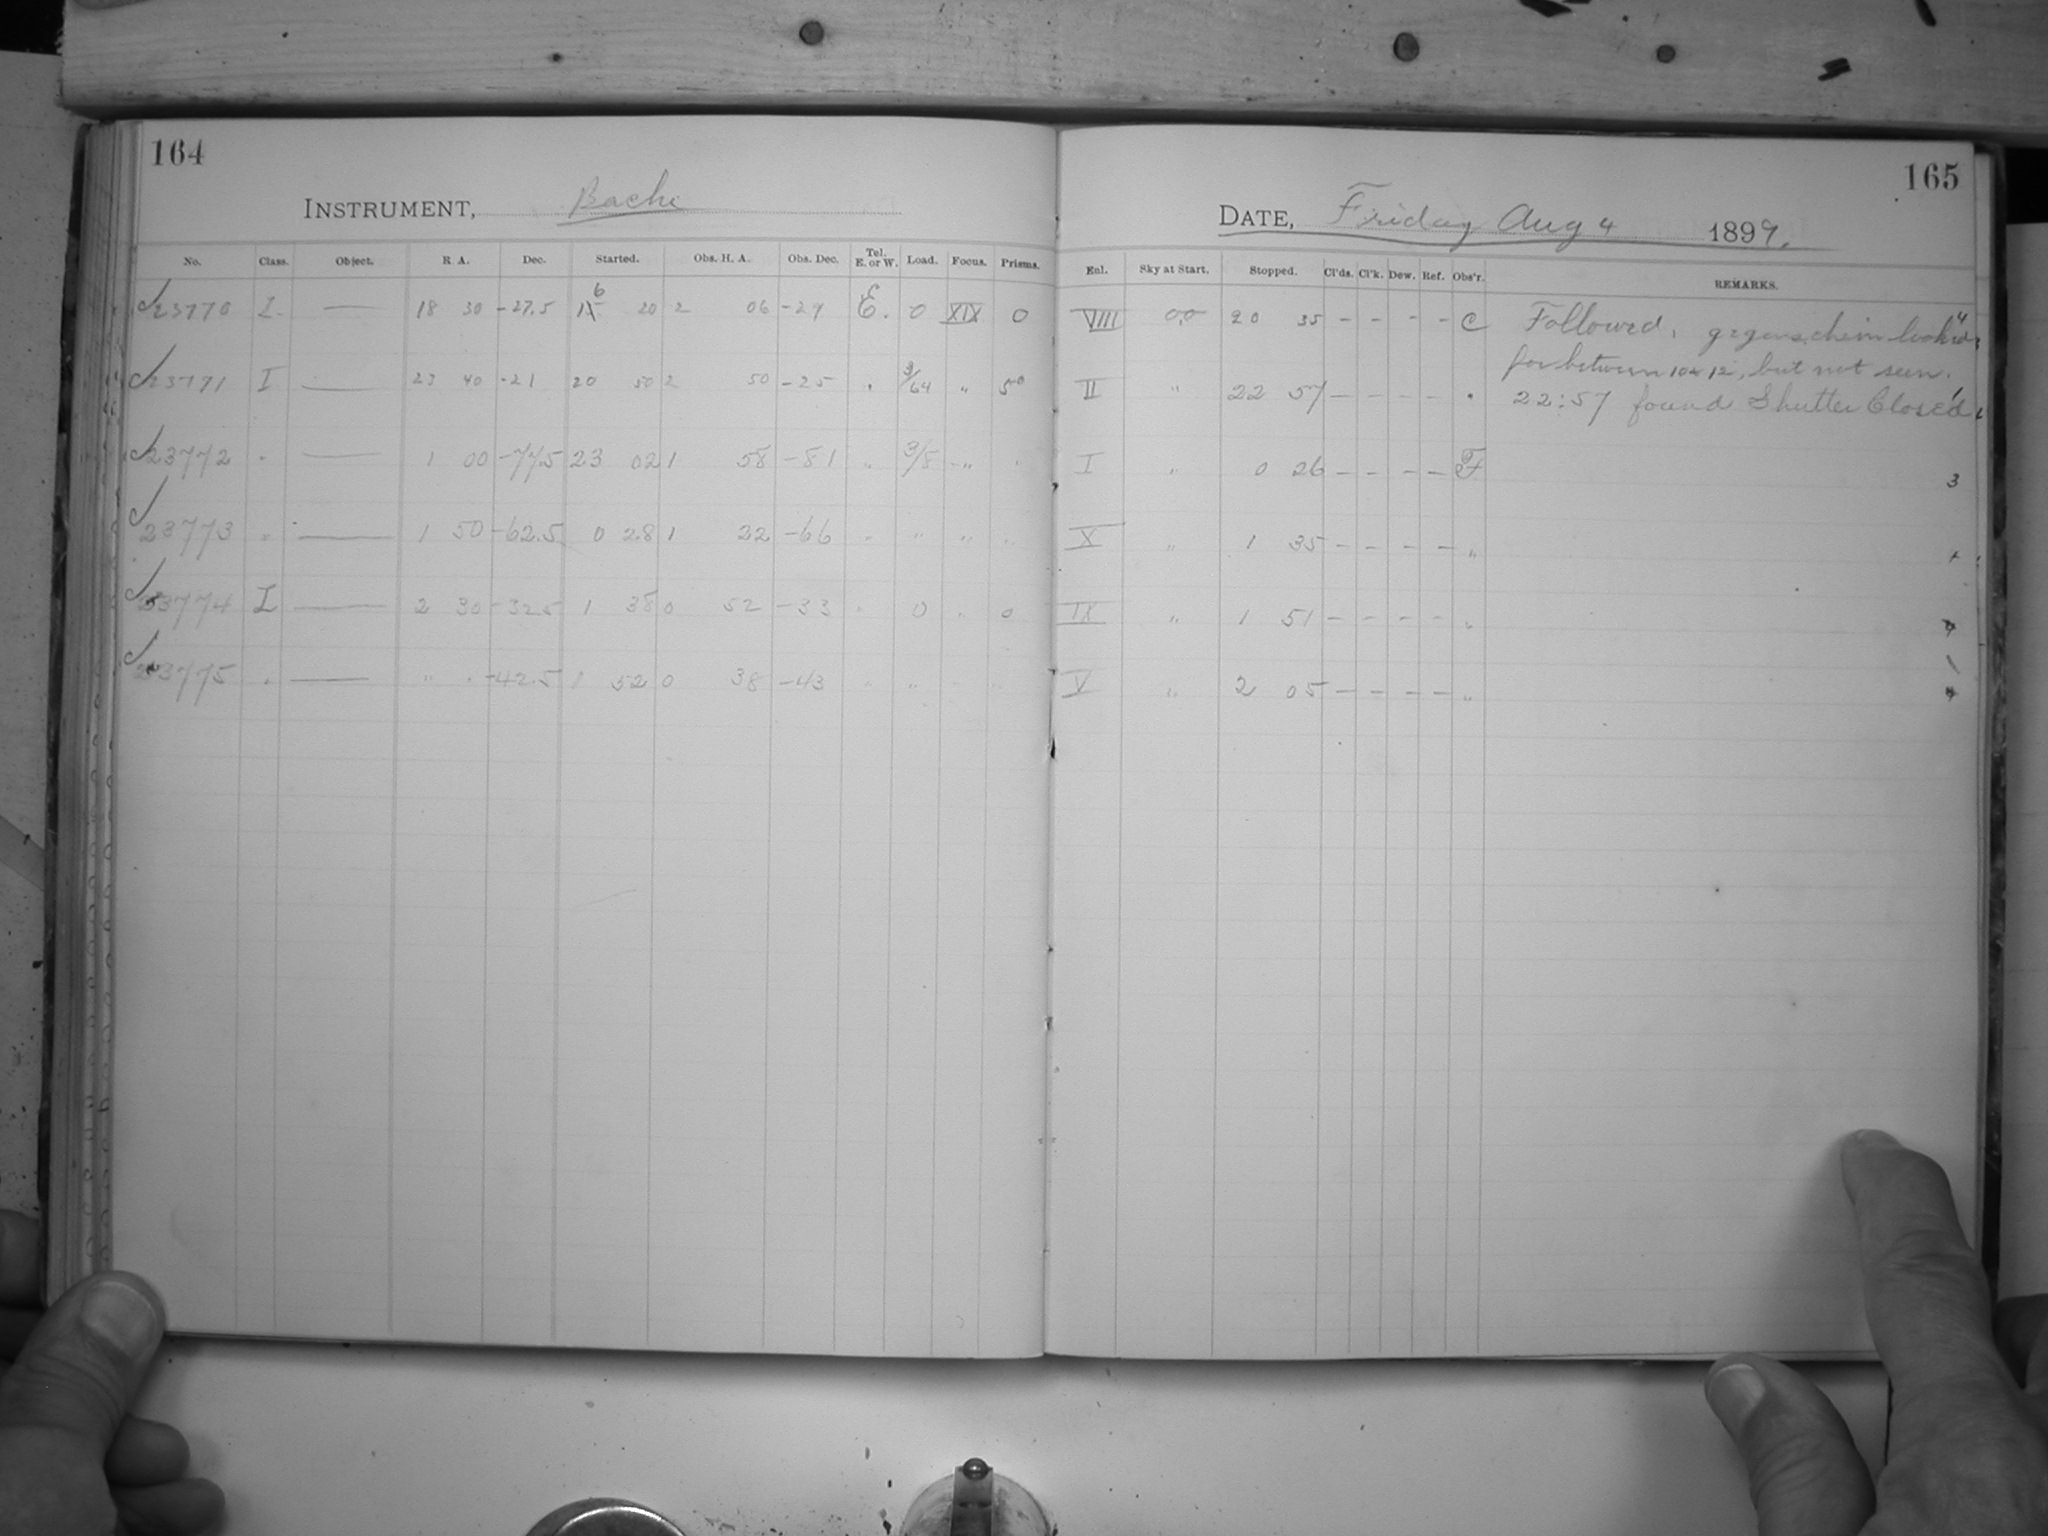 164
INSTRUMENT, Bache
No. Class. Object. R. A. Dec. Started. Obs. H. A. Obs. Dec. Tel. E. or W. Load. Focus. Prisms.
23770 I. — 18 30 -27.5 20 2 06 -29 E. 0 XIX 0
23771 I — 23 40 -21 20 50 2 50 -25 " 3/64 " 5°
23772 " — 1 00 -77.5 23 02 1 58 -81 " 3/8 " "
23773 " — 1 50 -62.5 0 28 1 22 -66 " " " "
23774 I — 2 30 -32.5 1 38 0 52 -33 " 0 " 0
23775 " — " " -42.5 1 52 0 38 -43 " "
165
DATE, Friday Aug 4 1899.
Enl. Sky at Start. Stopped. Cl'ds. Cl'k. Dew. Ref. Obs'r. REMARKS.
VIII 0,0 20 35 - - - - C Followed. gegenschein looked 4
for between 10 & 12, but not seen.
II " 22 57 - - - - " 22:57 found Shutter Closed
I " 0 26 - - - - F 3
X " 1 35 - - - - "
IX " 1 51 - - - - "
V " 2 05 - - - - "